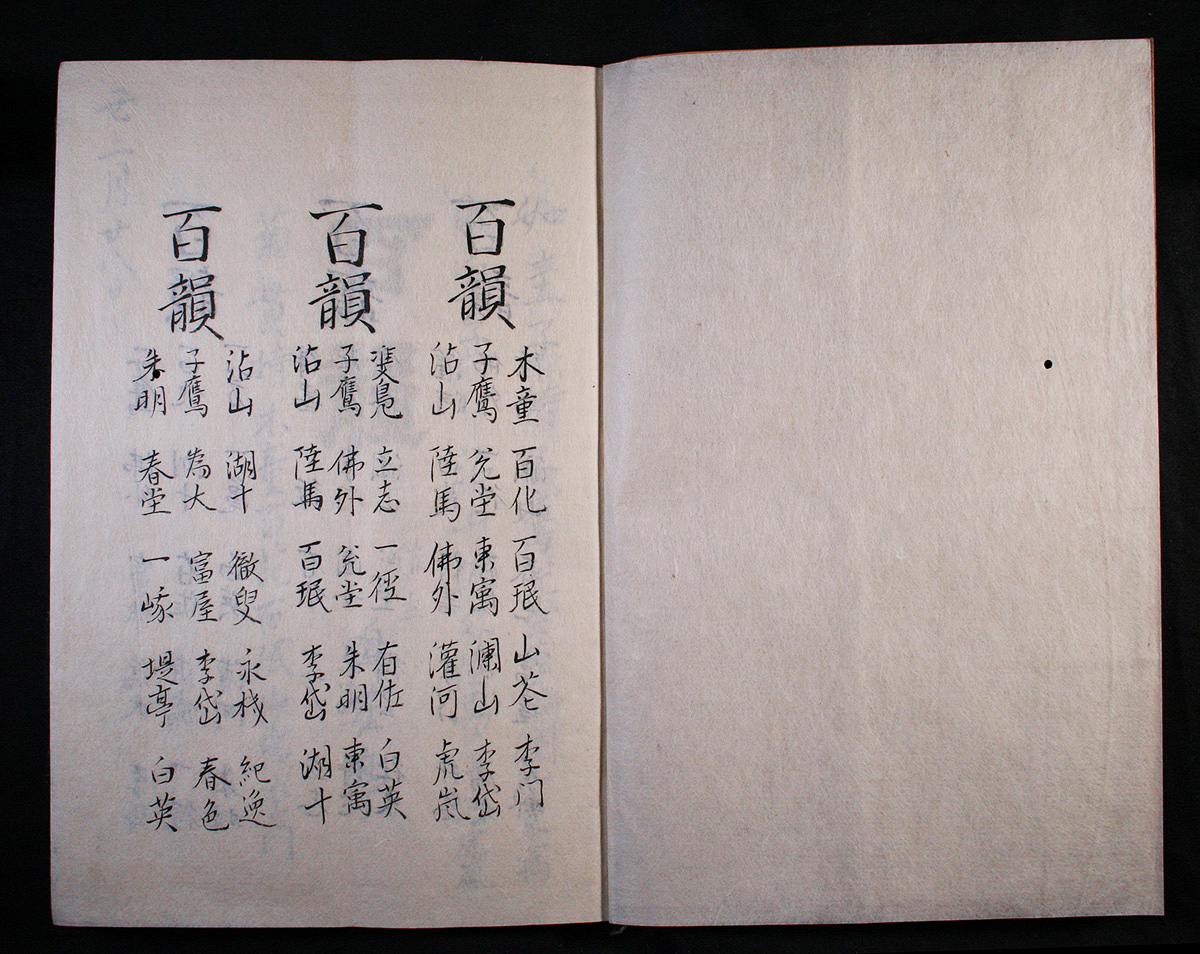 百韻
木童 百化 百珉 山苍 李门
子鷹 兊堂 東寓 瀾山 李岱
沾山 陸馬 佛外 灌河 虎嵐
百韻
斐鳬 立志 一徑 有佐 白英
子鷹 佛外 兊堂 朱明 東寓
沾山 陸馬 百珉 李岱 湖十
百韻
沾山 湖十 徹叟 永機 紀逸
子鷹 為大 富屋 李岱 春色
朱明 春堂 一峨 堤亭 白英